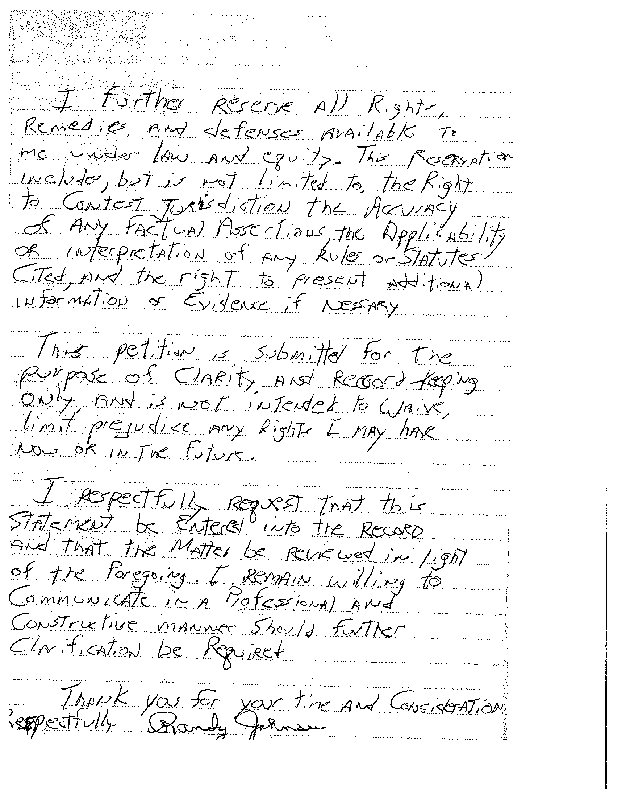 I further Reserve All Rights,
Remedies, and defenses Available To
me under law and equity. This Reservation
include, but is not limited to, the Right
to Contest Jurisdiction the Accuracy
of Any Factual Assertions, the Applicability
or interpretation of any Rules or Statutes
Cited, and the right to present additional
information or Evidence if Nessary
This petition is submitted for the
purpose of Clarity, and Reccord keeping
Only, and is not intended to waive,
limit prejudice any Rights I may have
now or in the future.
I Respectfully Request that this
Statement be Entered into the Record
and that the Matter be reviewed in light
of the Foregoing. I remain willing to
Communicate in a Professional and
Constructive manner Should further
Clarification be Required
Thank you for your time and Consideration
Respectfully Randy Johnson